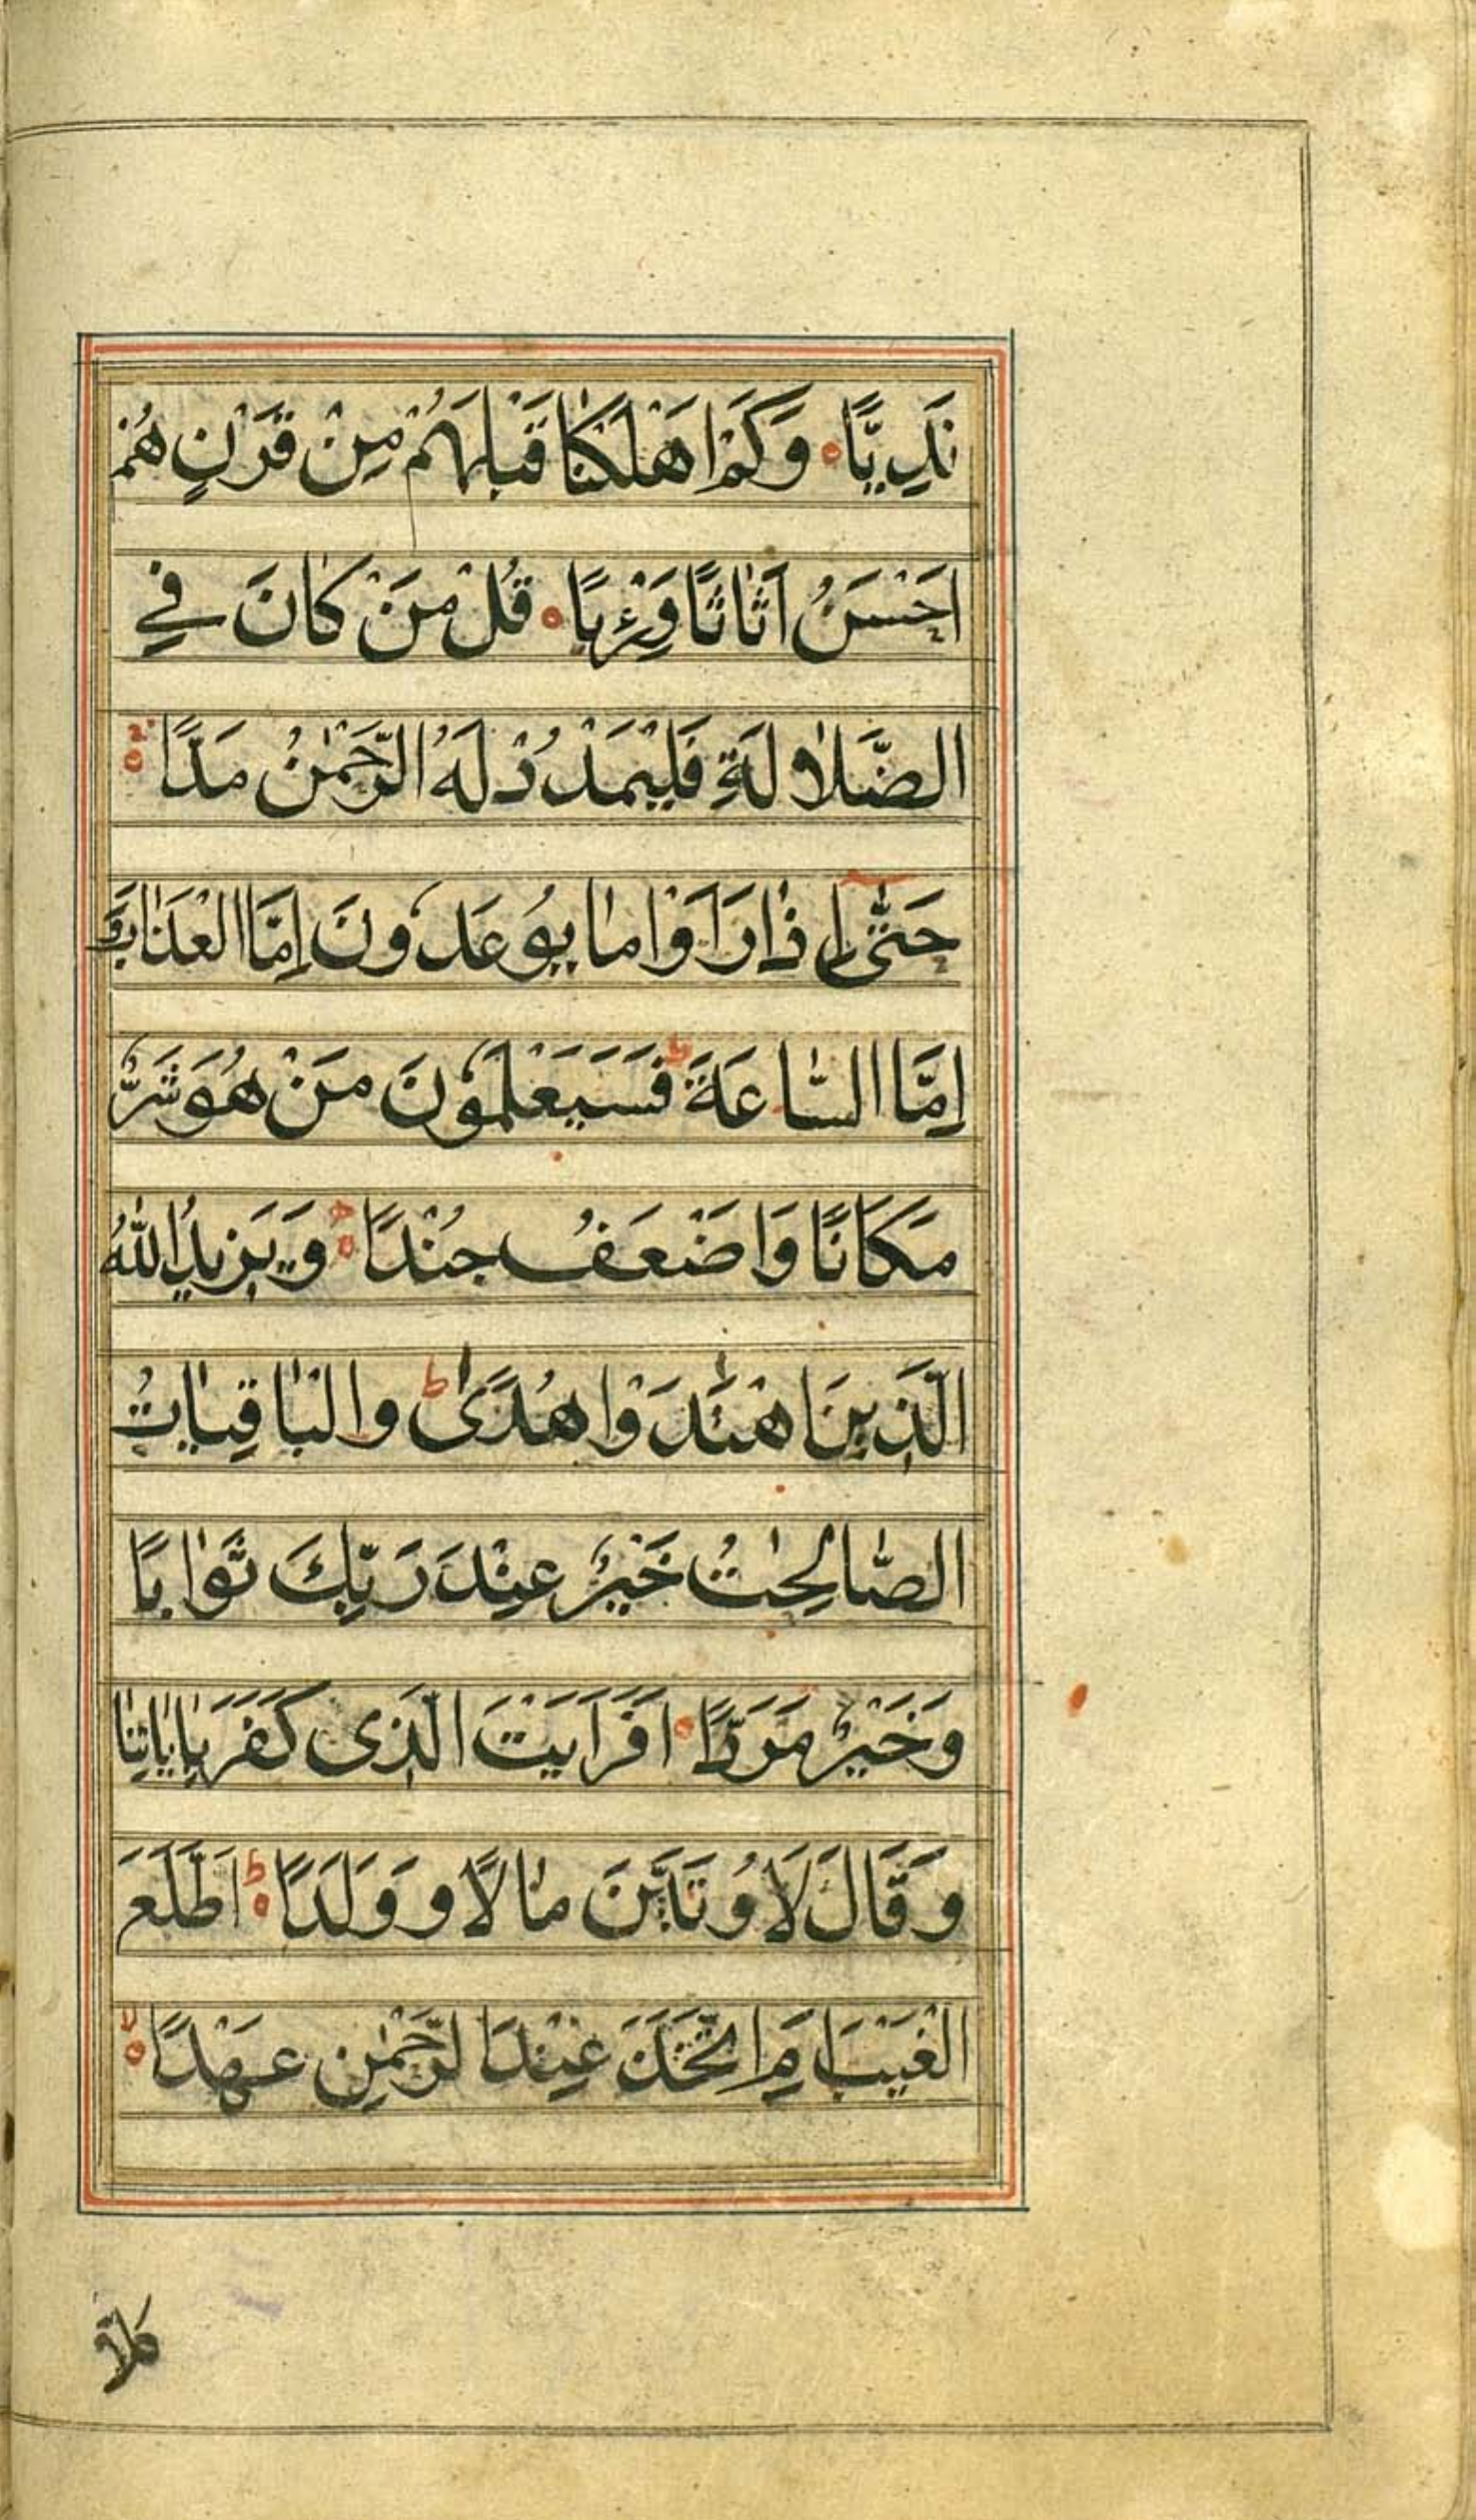 نَدِيًّا ۝ وَكَمْ اَهْلَكْنَا قَبْلَهُمْ مِنْ قَرْنٍ هُمْ
اَحْسَنُ اَثَاثًا وَرِءْيًا ۝ قُلْ مَنْ كَانَ فِي
الضَّلَالَةِ فَلْيَمْدُدْ لَهُ الرَّحْمٰنُ مَدًّا ۝
حَتّٰى اِذَا رَاَوْا مَا يُوعَدُونَ اِمَّا الْعَذَابَ وَ
اِمَّا السَّاعَةَ ط فَسَيَعْلَمُونَ مَنْ هُوَ شَرٌّ
مَكَانًا وَاَضْعَفُ جُنْدًا ۝ وَيَزِيدُ اللّٰهُ
الَّذِينَ اهْتَدَوْا هُدًى ط وَالْبَاقِيَاتُ
الصَّالِحٰتُ خَيْرٌ عِنْدَ رَبِّكَ ثَوَابًا
وَخَيْرٌ مَرَدًّا ۝ اَفَرَاَيْتَ الَّذِى كَفَرَ بِاٰيَاتِنَا
وَقَالَ لَاُوتَيَنَّ مَالًا وَوَلَدًا ۝ ط اَطَّلَعَ
الْغَيْبَ اَمِ اتَّخَذَ عِنْدَ الرَّحْمٰنِ عَهْدًا ۝ لا
كَلَّا